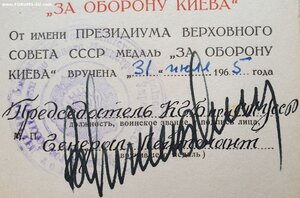 „ЗА ОБОРОНУ КИЕВА"
От имени ПРЕЗИДИУМА ВЕРХОВНОГО
СОВЕТА СССР МЕДАЛЬ „ЗА ОБОРОНУ
КИЕВА" ВРУЧЕНА „31" июля 1965 года
Председатель КГБ при
должность, воинское звание и подпись лица,
Генерал-лейтенант